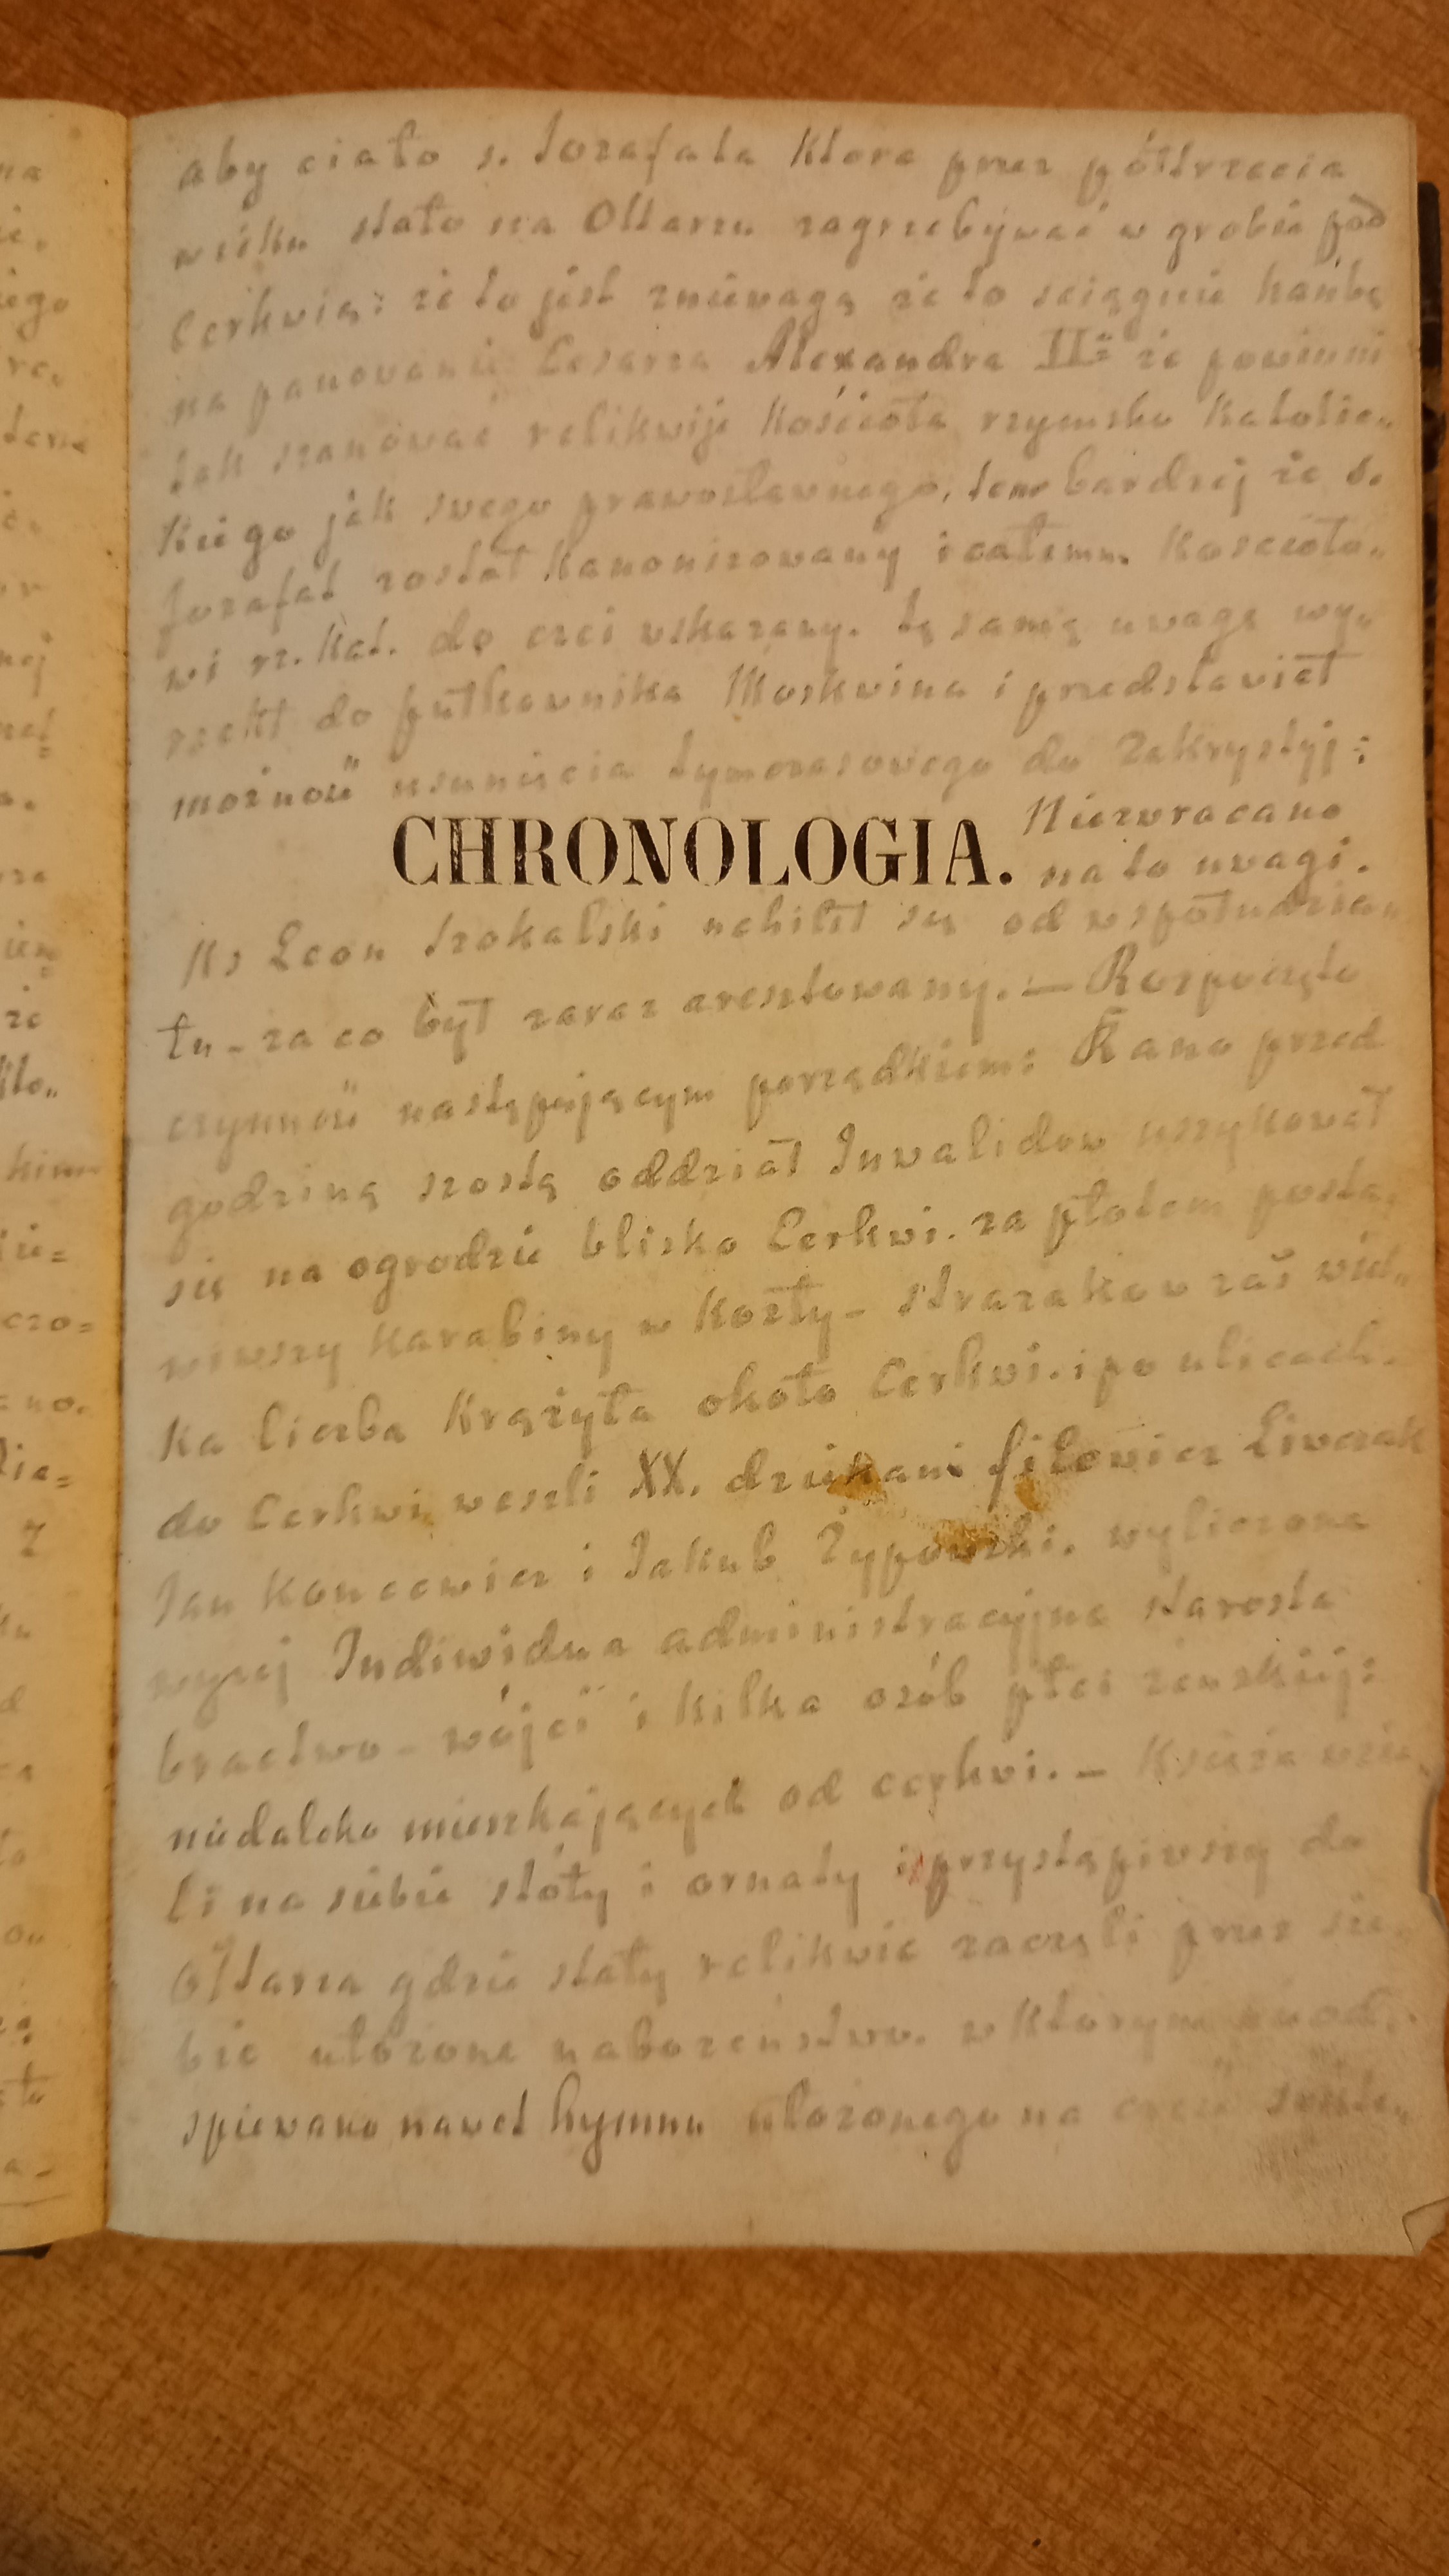 aby ciało s. Jozafata ktore przez półtrzecia
wieku stało na Ołtarzu zagrzebywać w grobie pod
Cerkwią: że to jest zniewagą że to sciągnie hańbę
na panowanie Cesarza Alexandra IIº że powinni
tak szanować relikwije kościoła rzymsko Katolic„
kiego jak swego prawosławnego, tem bardziej że S.
Jozafat został kanonizowany i całemu Kościoło„
wi rz. kat. do czci wskazany. tę samą uwagę wy„
rzekł do pułkownika Moskwina i przedstawiał
możność usunięcia tymczasowego do Zakrystyj:
CHRONOLOGIA. Niezwracano
na to uwagi.
Ks Leon Szokalski uchilił się od wspołudzia„
łu - za co był zaraz aresztowany. — Rozpoczęto
czynność następującym porządkiem: Rano przed
godziną szostą oddział Inwalidow uszykował
się na ogrodzie blisko Cerkwi. za płotem posta„
wiwszy karabiny w kozły - strazakow zaś wiel„
ka liczba krążyła około Cerkwi. i po ulicach.
do Cerkwi weszli XX. dziekani filowicz Liwczak
Jan Koncewicz i Jakub Zypowski. wyliczone
wyzej Indiwidua administracyjne starosta
bractwo - wójci i kilka osób płci zenskiej:
niedaleko mieszkających od cerkwi. - Księża wzie„
li na siebie stóły i ornaty i przystąpiwszy do
Ołtarza gdzie stały relikwie zaczęli przez sie„
bie ułozone nabozenstwo. w ktorym
spiewano nawet hymnu ułozonego na cześć